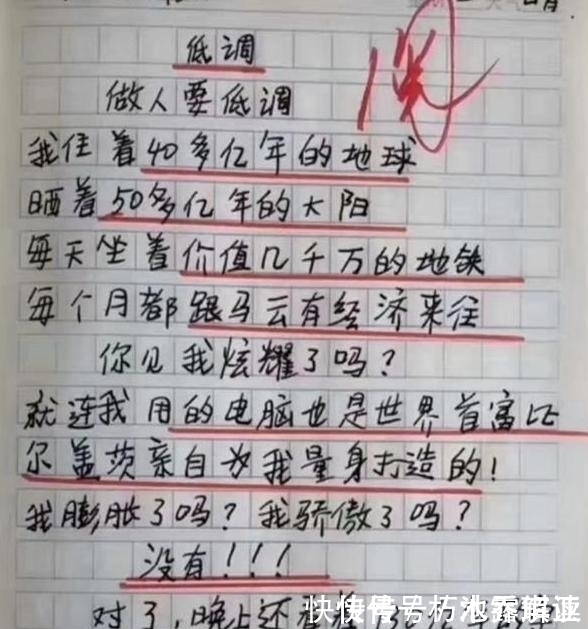 低调
做人要低调
我住着40多亿年的地球
晒着50多亿年的大阳
每天坐着价值几千万的地铁
每个月都跟马云有经济来往
你见我炫耀了吗？
就连我用的电脑也是世界首富比
尔盖茨亲自为我量身打造的！
我膨胀了吗？我骄傲了吗？
没有！！！
对了，晚上还
快传号